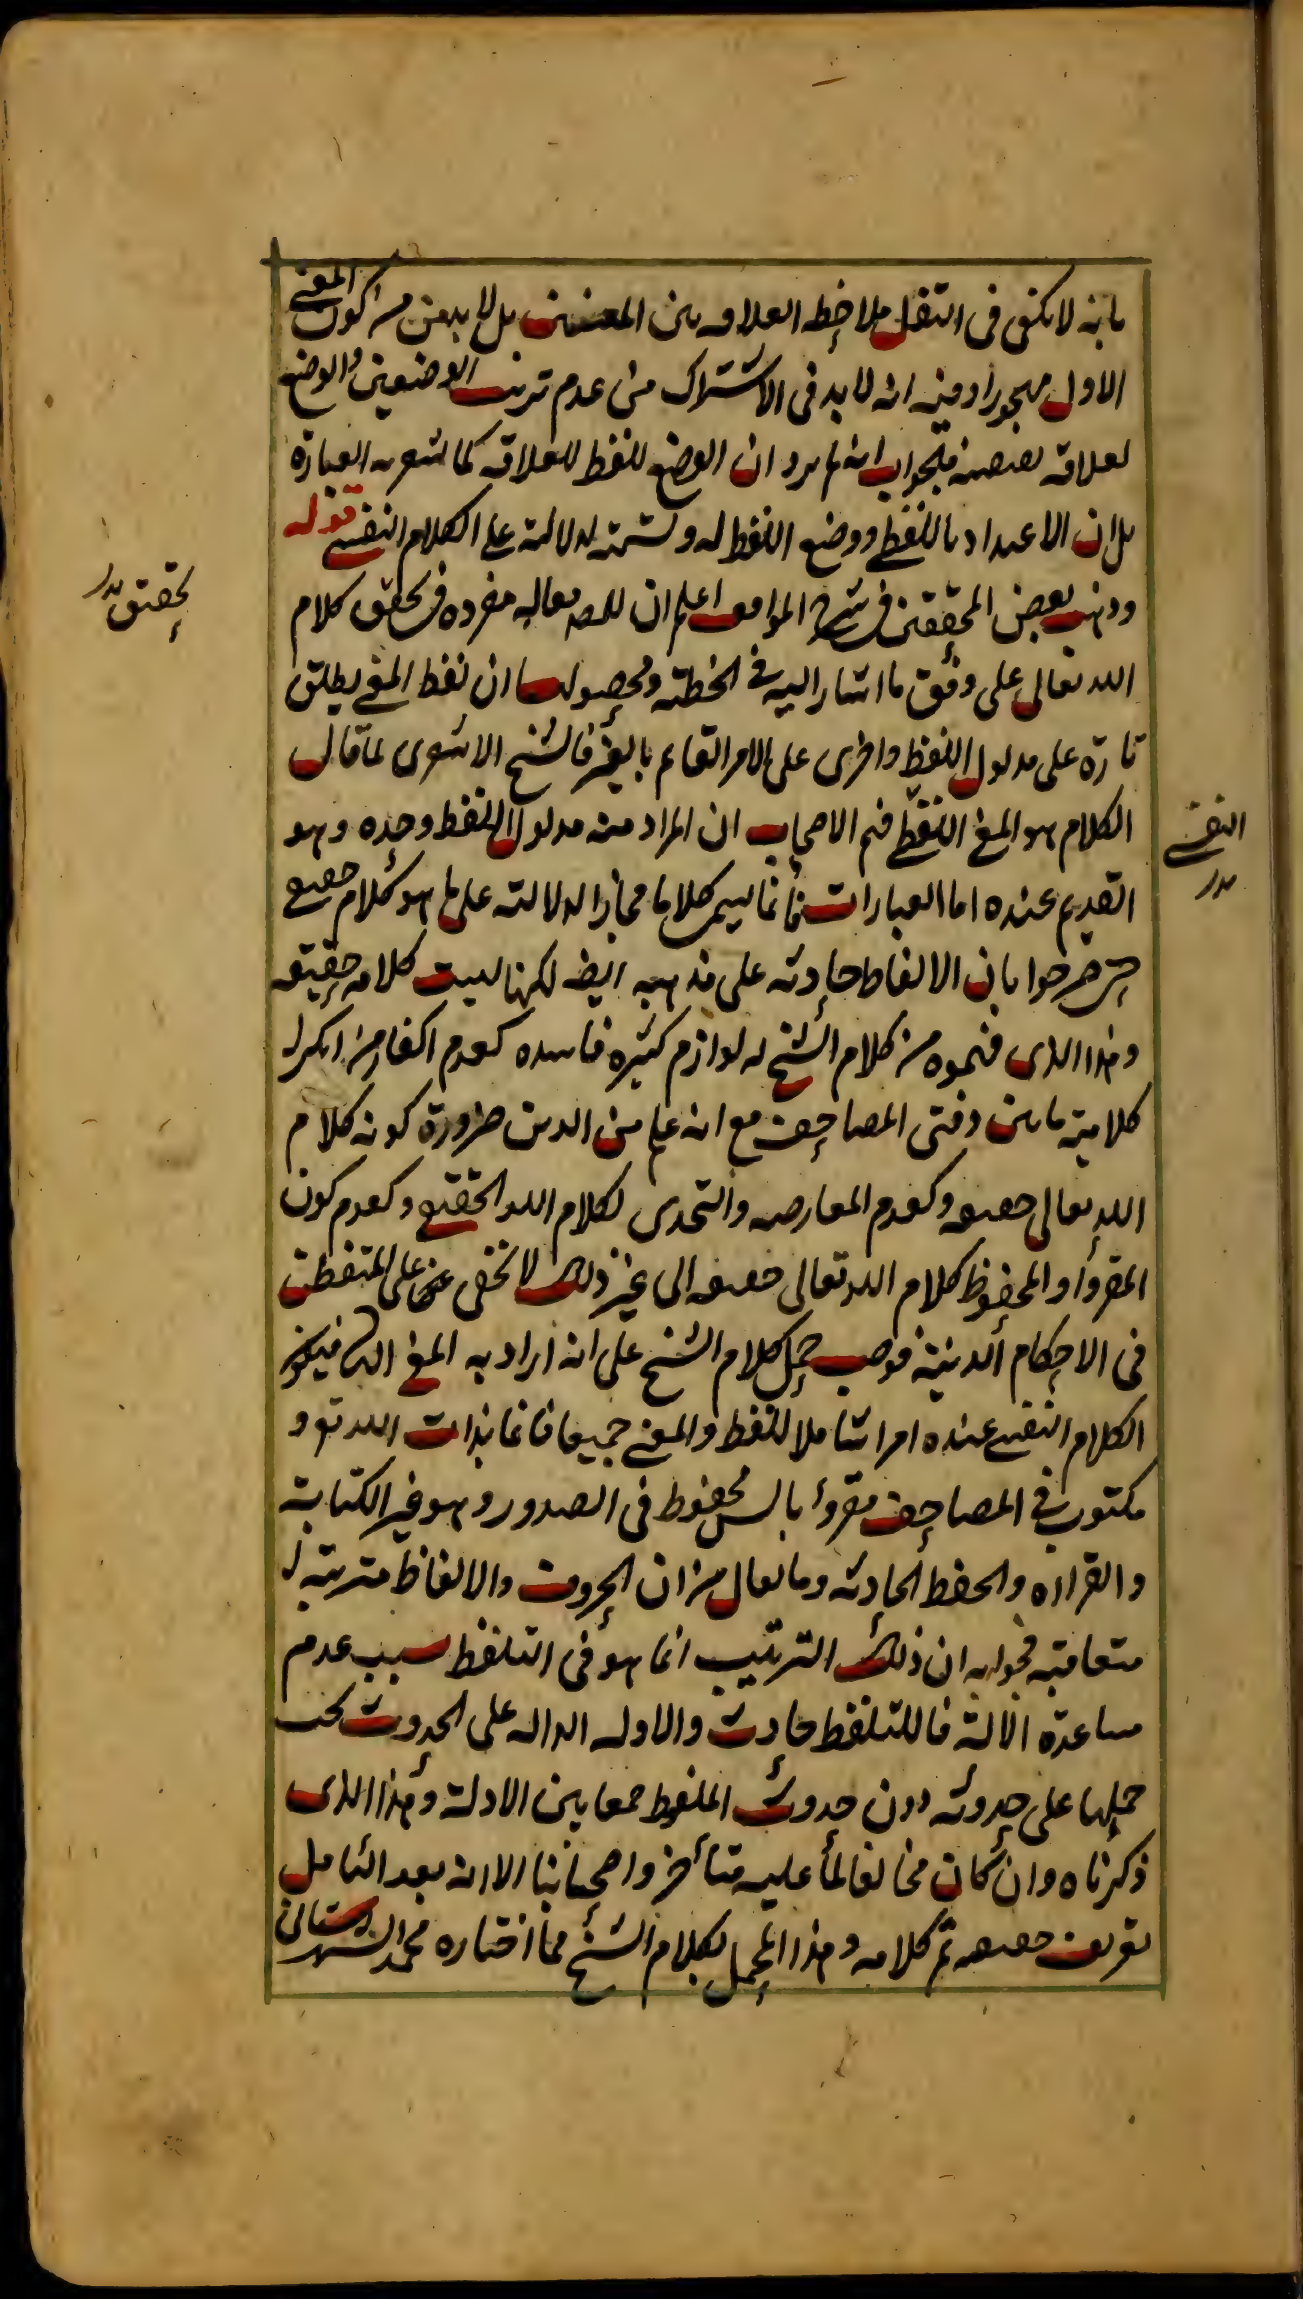 بانه لا يكفى فى النقل ملاحظه العلاقه بين المعنيين بل لا بد من كون المعنى
الاول مهجورا وفيه انه لا بد فى الاشتراك من عدم ترتب الوضعين والوضع
لعلاقه يقتضيه فالجواب انه لم يرد ان الوضع للفظ للعلاقه كما يشعر به العبارة
بل ان الاعتداد باللفظ ووضع اللفظ له وتسميته لدلالته على الكلام النفسى قوله
وذهب بعض المحققين فى شرح المواقف اعلم ان للمص مقاله مفرده فى تحقيق كلام
الله تعالى على وفق ما اشار اليه فى الخطبة ومحصولها ان لفظ المعنى يطلق
تارة على مدلول اللفظ واخرى على الامر القايم بالغير فالشيخ الاشعرى لما قال
الكلام هو المعنى النفسى فهم الاصحاب ان المراد منه مدلول اللفظ وحده وهو
القديم عنده اما العبارات فانما يسمى كلاما مجازا لدلالته على ما هو كلام حقيقى
حتى صرحوا بان الالفاظ حادثه على مذهبه ايضا لكنها ليست كلامه حقيقه
وهذا الذى فهموه من كلام الشيخ له لوازم كثيره فاسده كعدم اكفار من انكر
كلامية ما بين دفتى المصاحف مع انه علم من الدين ضرورة كونه كلام
الله تعالى حقيقه وكعدم المعارضه والتحدى لكلام الله الحقيقى وكعدم كون
المقروأ والمحفوظ كلام الله تعالى حقيقه الى غير ذلك لا تخفى على المتفطن
فى الاحكام الدينية فوجب حمل كلام الشيخ على انه اراد به المعنى الثانى فيكون
الكلام النفسى عنده امرا شاملا للفظ والمعنى جميعا قائما بذات الله تع و
مكتوب فى المصاحف مقروأ بالسن محفوظ فى الصدور وهو غير الكتابة
والقراءه والحفظ الحادثه وما يقال من ان الحروف والالفاظ مترتبة
متعاقبة فجوابه ان ذلك الترتيب انما هو فى التلفظ بسبب عدم
مساعدة الآلة فاللتلفظ حادث والاوله الداله على الحدوث يجب
حملها على حدوثه دون حدوث الملفوظ جمعا بين الادلة وهذا الذى
ذكرناه وان كان مخالفا لما عليه متأخروا اصحابنا الا انه بعد التامل
يعرف حقيقته تم كلامه وهذا المحمل لكلام الشيخ مما اختاره محمد الشهرستانى
تحقيق بدر
النفسى
بدر